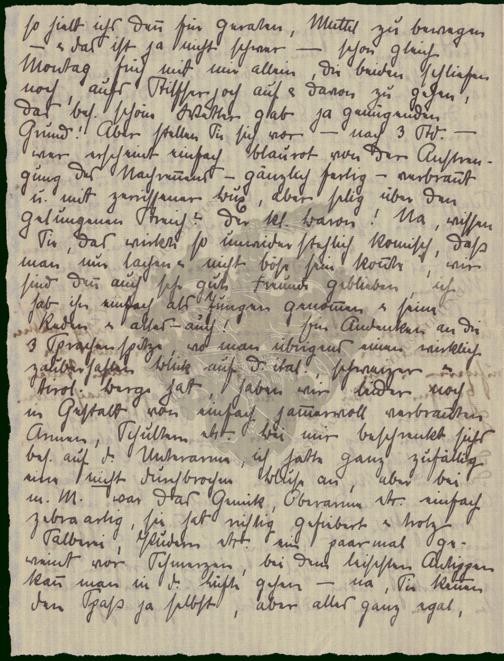 so hielt ich's denn für geraten, Muttel zu bewegen
– & das ist ja nicht schwer – schon gleich
Montag früh mit mir allein, die beiden schliefen
noch, aufs Stilfserjoch auf & davon zu gehen,
das bes. schöne Wetter gab ja genügenden
Grund! Aber stellen Sie sich vor – nach 3 Std. –
wer erscheint einfach blaurot von der Anstren-
gung des Nachrennens – gänzlich fertig – verbrannt
u. mit zerrissener aber selig über den
gelungenen Streich? Der kl. Baron! Na, wissen
Sie, das wirkte so unwiderstehlich komisch, daß
man nur lachen & nicht böse sein konnte, wir
sind denn auch sehr gute Freunde geblieben, ich
hab ihn einfach als Jungen genommen & seine
Reden & alles auch! Ein Andenken an die
3 Sprachenspitze, wo man übrigens einen wirklich
zauberhaften Blick auf d. ital. schweizer &
tirol. Berge hat, haben wir leider noch
in Gestalt von einfach jammervoll verbrannten
Armen, Schultern etc. Bei mir beschränkt sich's
bes. auf d. Unterarme, ich hatte ganz zufällig
eine nicht durchbrochene Bluse an, aber bei
m. M. war das Genick, Oberarme etc. einfach
zebraartig, sie hat richtig gefiebert & trotz
Salberei, Pudern etc. ein paarmal ge-
weint vor Schmerzen, bei dem leisesten Antippen
kann man in d. Lüfte gehen – na, Sie kennen
den Spaß ja selbst, aber alles ganz egal,